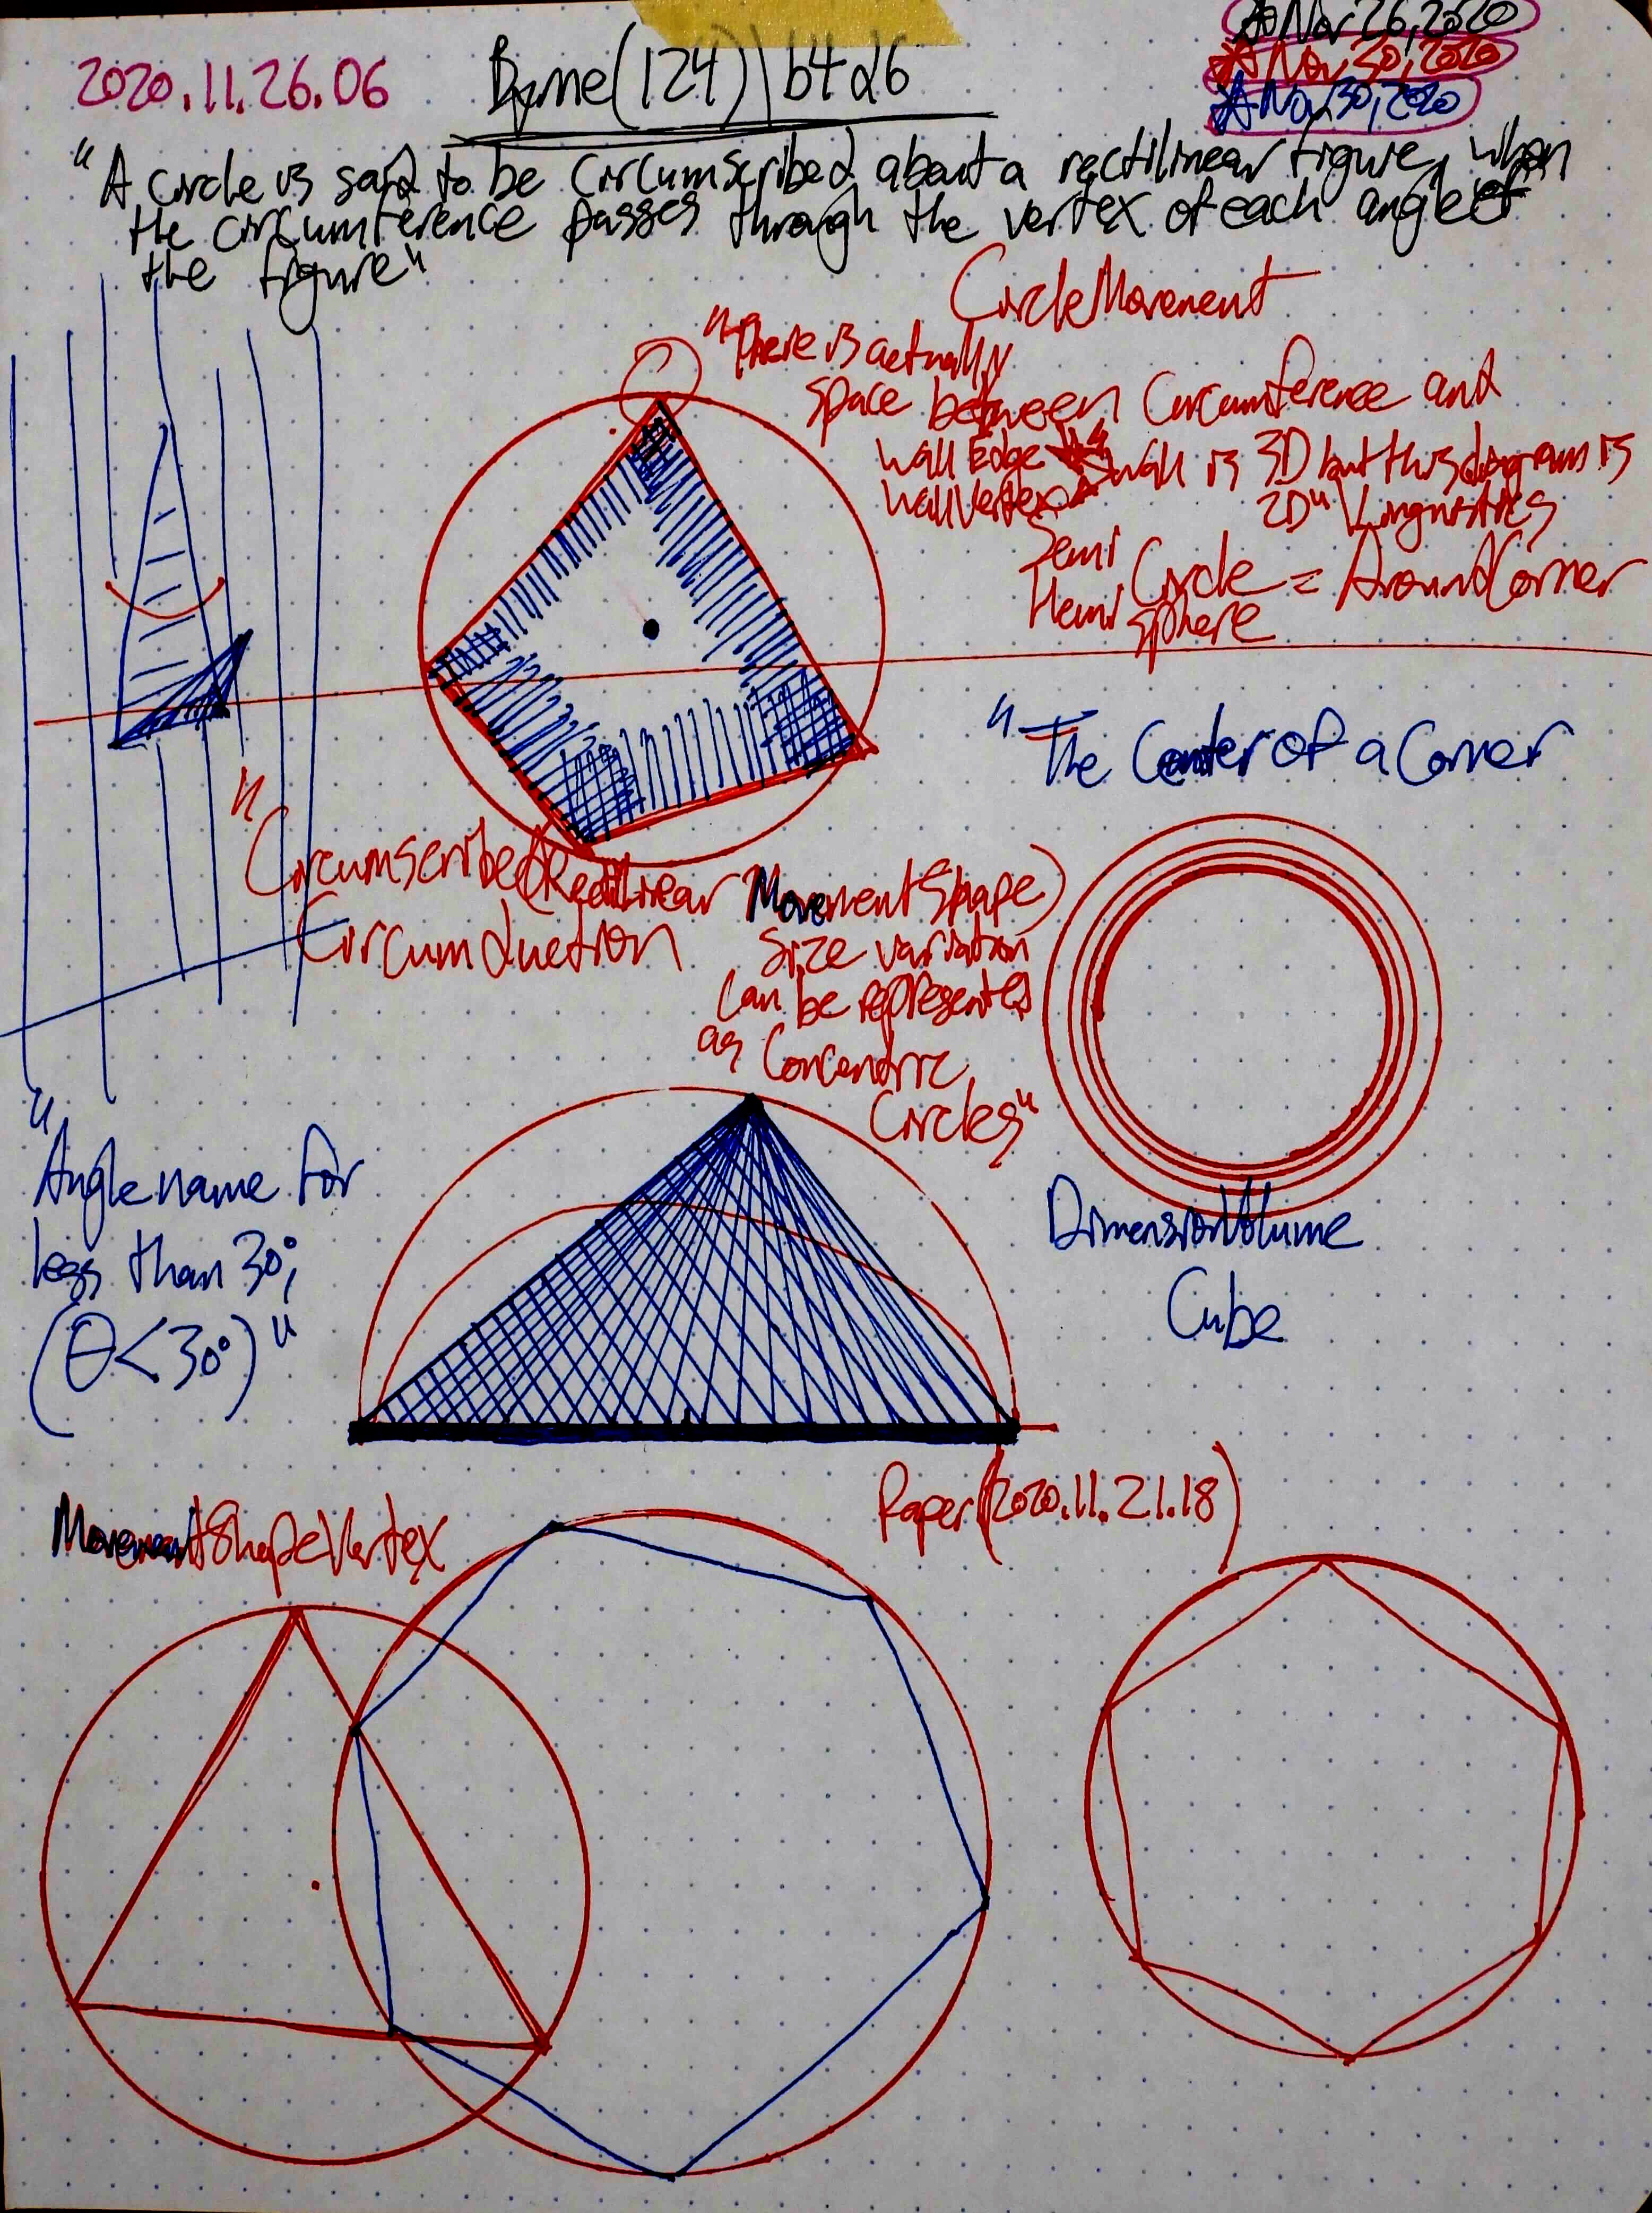 A Nov 26, 2020
A Nov 30, 2020
A Nov 30, 2020
2020.11.26.06
Byrne(124)\b4d6
"A circle is said to be circumscribed about a rectilinear figure, when
the circumference passes through the vertex of each angle of
the figure"
CircleMovement
"There is actually
space between Circumference and
Wall Edge
WallVertex
Wall is 3D but this diagram is
2D" Linguistics
Semi Circle = AroundCorner
Hemi sphere
"The Center of a Corner
"Circumscribed(RectiLinear MovementShape)
Circumduction
Size variation
can be represented
as Concentric
Circles"
"Angle name for
less than 30°;
(θ<30°)"
DimensionVolume
Cube
Paper(2020.11.21.18)
MovementShapeVertex